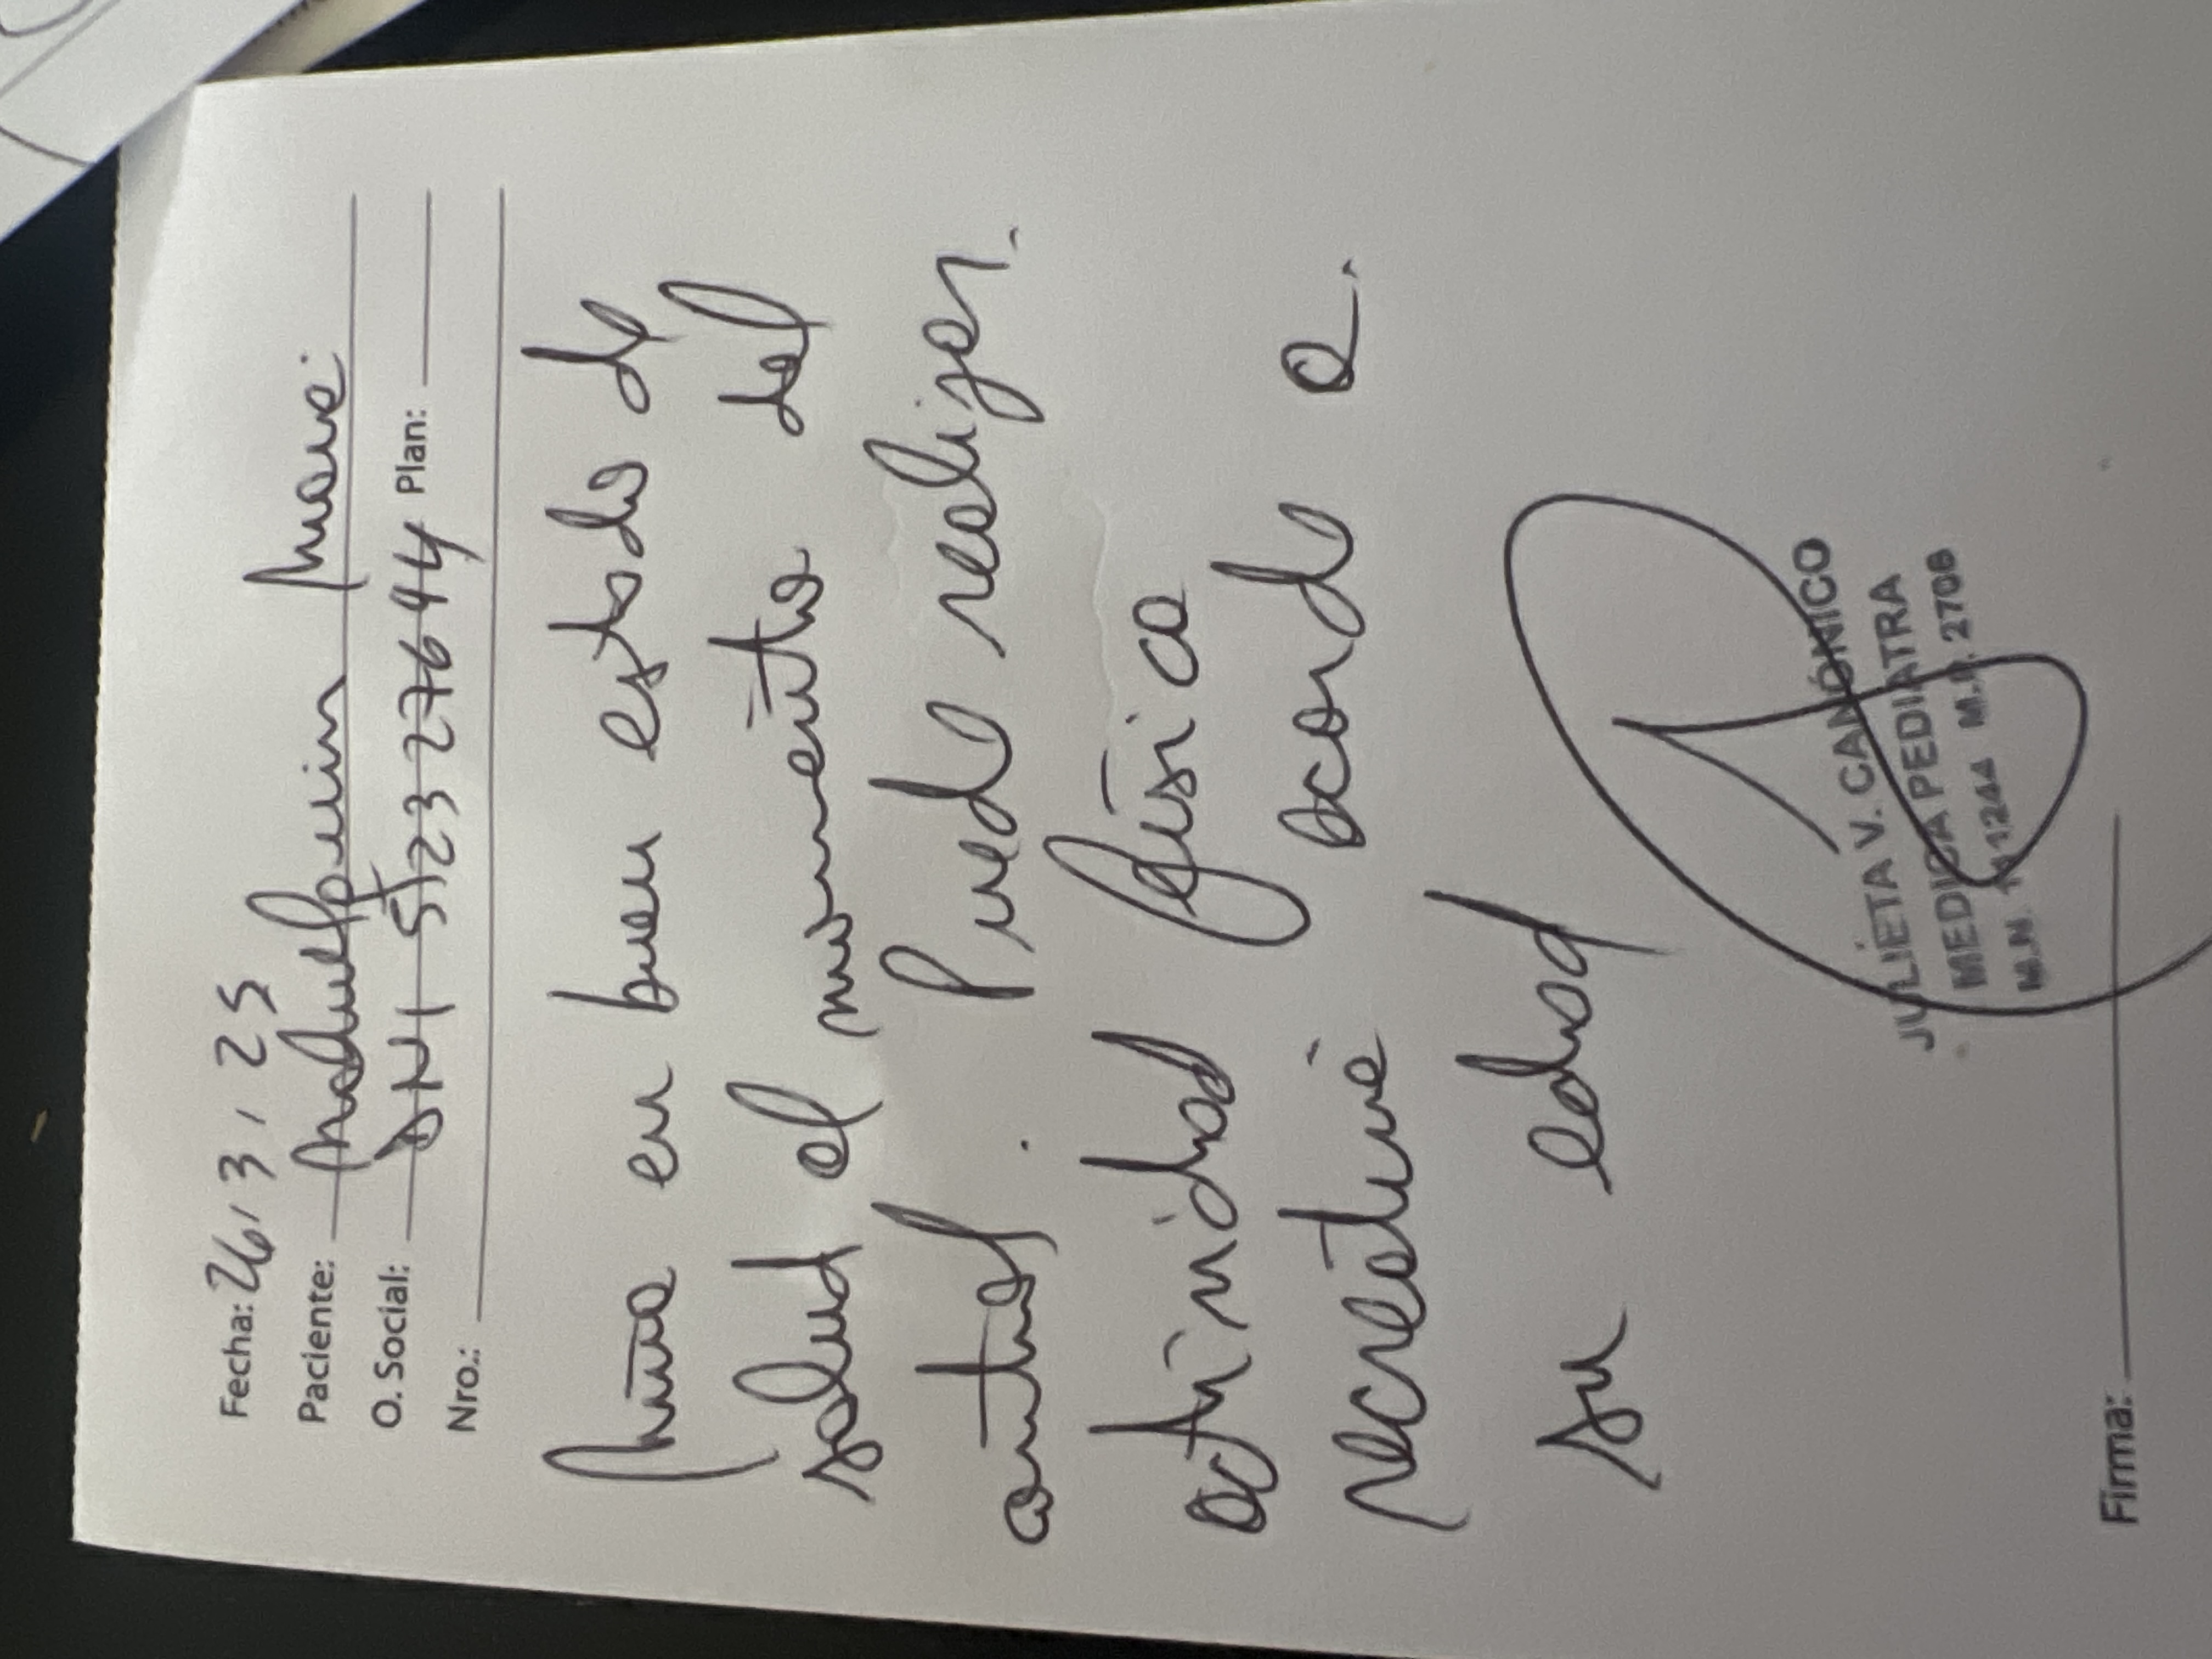 Fecha: 26/3/25
Paciente:
O. Social: DNI Plan:
Nro.:
Niña en buen estado de
salud al momento del
control. Puede realizar
actividad física
recreativa acorde a
su edad
JULIETA V. CANÓNICO
MEDICA PEDIATRA
M.N. 111244 M.P. 2708
Firma: